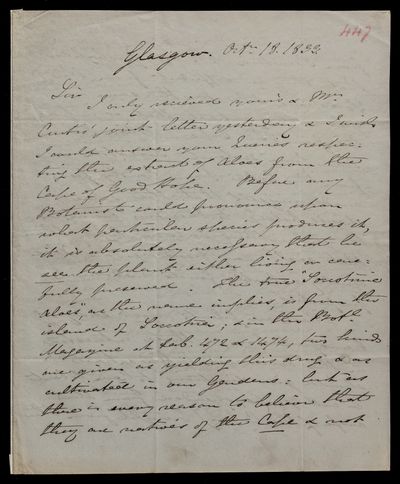 447
Glasgow. Octr. 18. 1833.
Sir
I only received yours & Mr.
Curtis' joint letter yesterday & I wish
I could answer your Queries respec-
ting the extract of Aloes from the
Cape of Good Hope. Before any
Botanist could pronounce upon
what particular species produces it,
it is absolutely necessary that he
see the plant either living or care-
fully preserved. The true "Socotrine
Aloes", as the name implies, is from the
island of Socotria; & in the Botl.
Magazine at tab. 472 & 1474, two kinds
are given as yielding this drug & as
cultivated in our Gardens: but as
there is every reason to believe that
they are natives of the Cape & not